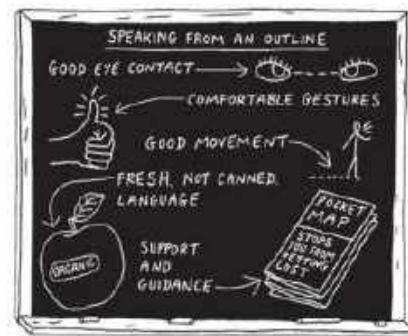 SPEAKING FROM AN OUTLINE
GOOD EYE CONTACT
COMFORTABLE GESTURES
GOOD MOVEMENT
FRESH, NOT CANNED,
LANGUAGE
ORGANIC
SUPPORT
AND
GUIDANCE
POCKET
MAP
STOPS
YOU FROM
GETTING
LOST